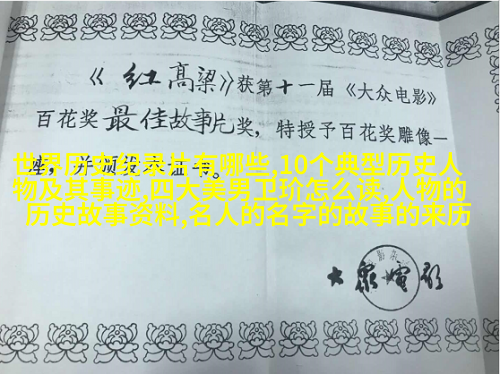 《红高粱》获第十一届《大众电影》
百花奖最佳故事片奖，特授予百花奖雕像一
座，并颁发 证书。
世界历史纪录片有哪些,10个典型历史人
物及其事迹,四大美男卫玠怎么读,人物的
历史故事资料,名人的名字的故事的来历
大众电影